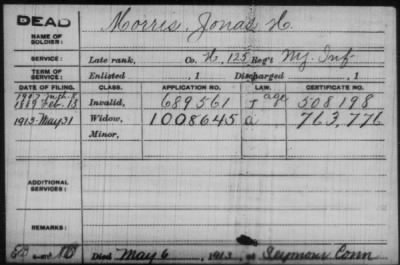 DEAD
NAME OF SOLDIER: Morris, Jonas H.
SERVICE: Late rank, Co. H, 125 Reg't N.Y. Inf
TERM OF SERVICE: Enlisted , 1 Discharged , 1
DATE OF FILING. CLASS. APPLICATION NO. LAW. CERTIFICATE NO.
1907
1889 Feb. 18 Invalid, 689561 age 508198
1913 May 31 Widow, 1008645 a 763,776
Minor,
ADDITIONAL SERVICES:
REMARKS:
Died May 6, 1913, at Seymour Conn